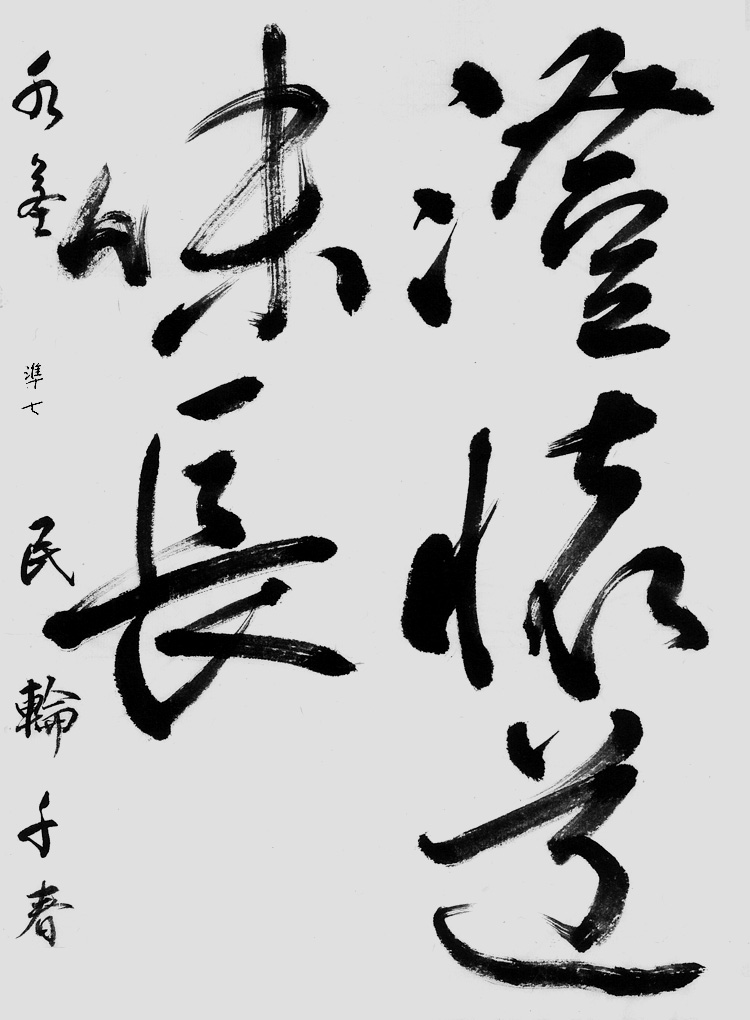 澄懐道
味長
永峯 準七 民輪千春